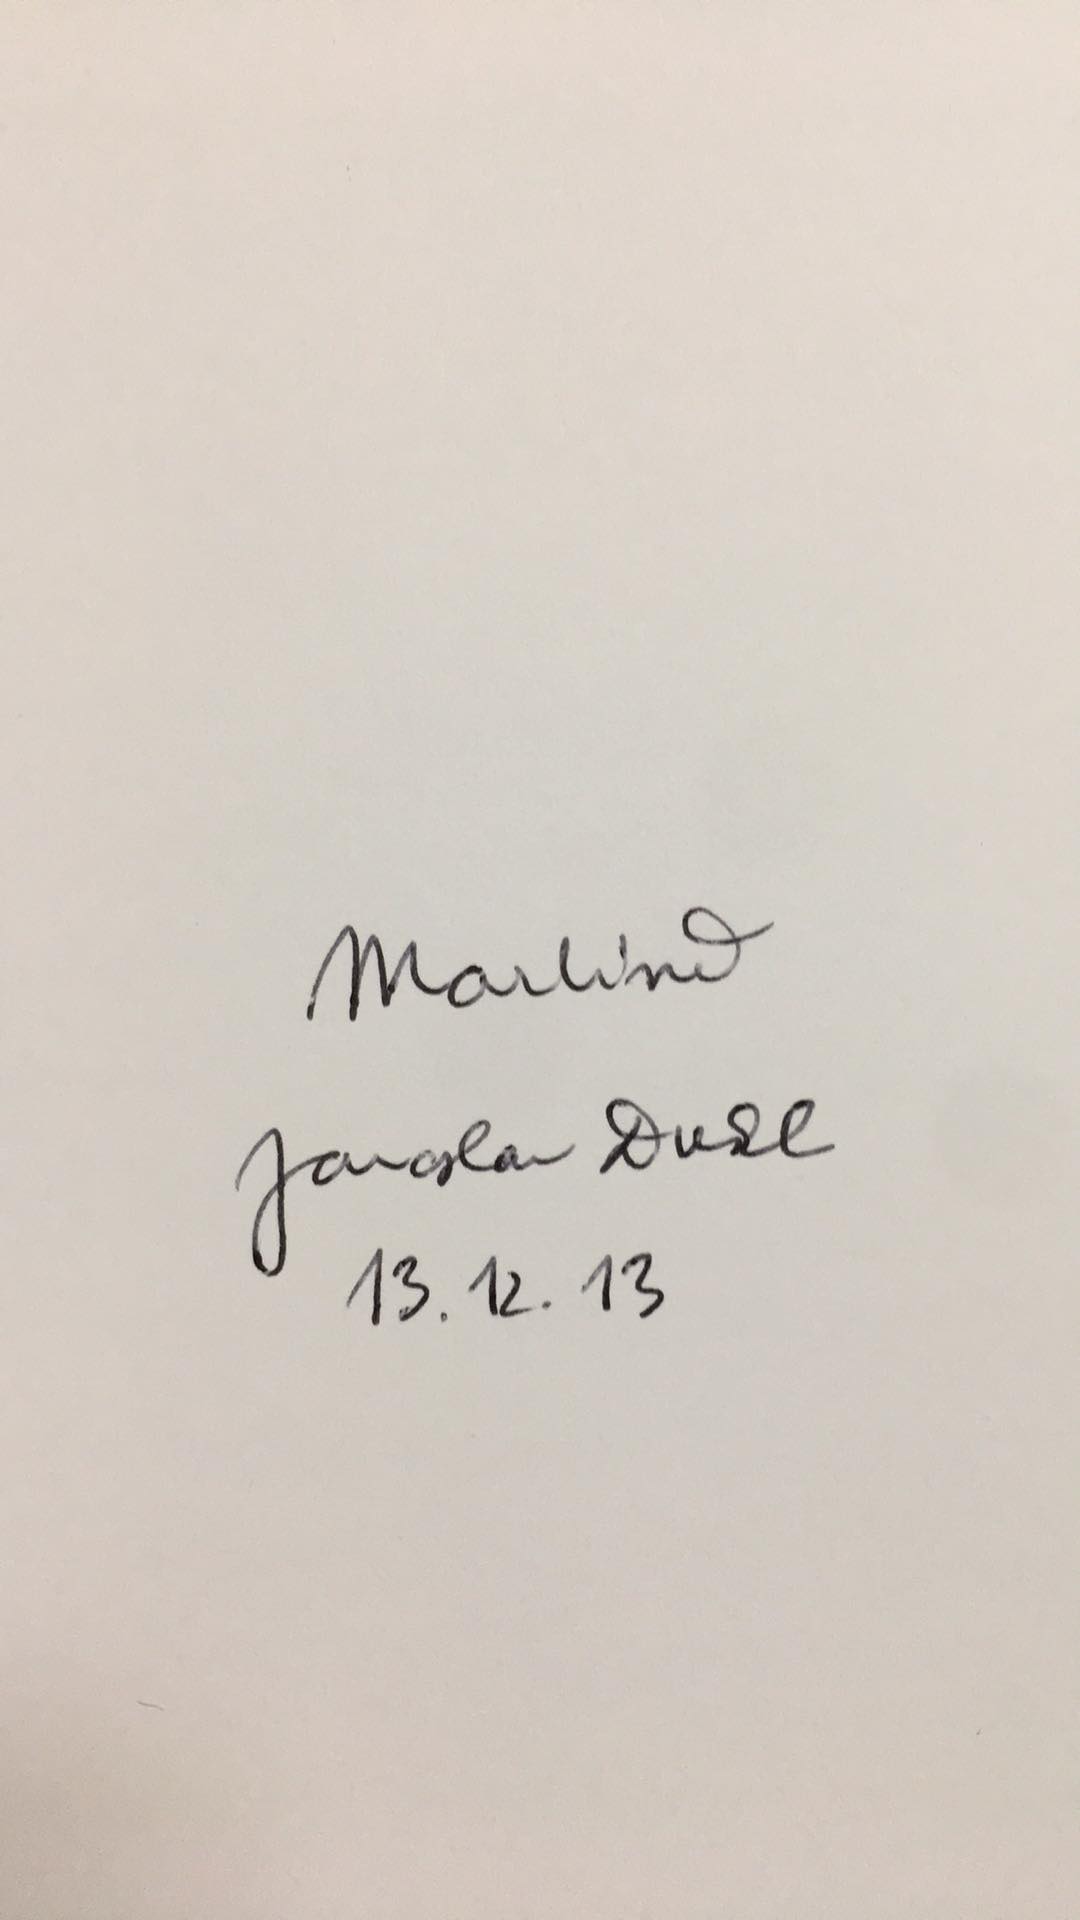 Martině
Jaroslav Dušek
13.12.13